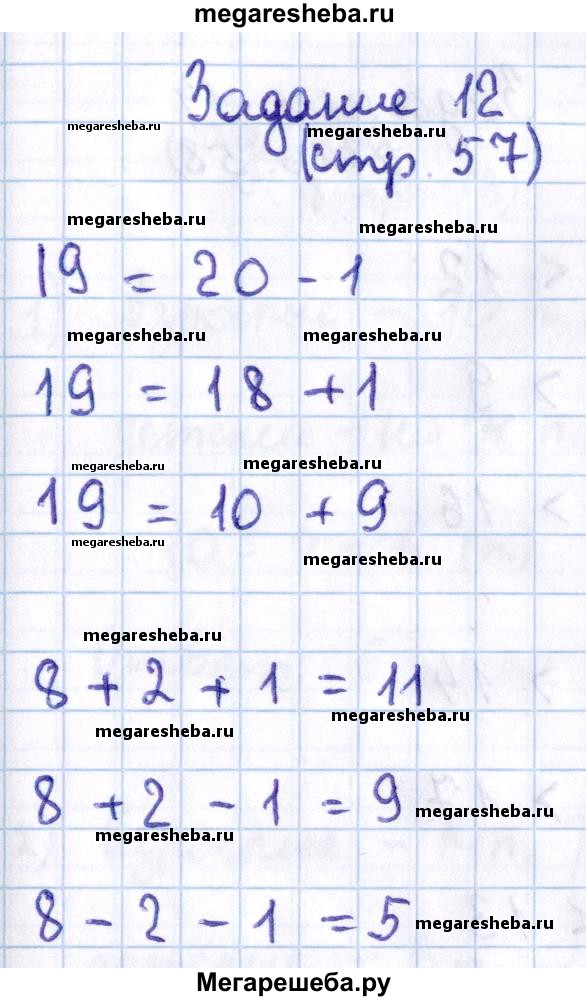 megaresheba.ru
Задание 12
megaresheba.ru megaresheba.ru
(стр. 57)
megaresheba.ru megaresheba.ru
19 = 20 - 1
megaresheba.ru megaresheba.ru
19 = 18 + 1
megaresheba.ru megaresheba.ru
19 = 10 + 9
megaresheba.ru megaresheba.ru
megaresheba.ru
8 + 2 + 1 = 11
megaresheba.ru megaresheba.ru
8 + 2 - 1 = 9 megaresheba.ru
megaresheba.ru
8 - 2 - 1 = 5 megaresheba.ru
Мегарешеба.ру